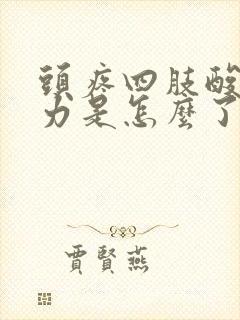 頭疼四肢酸
力是怎麼了
賈賢燕